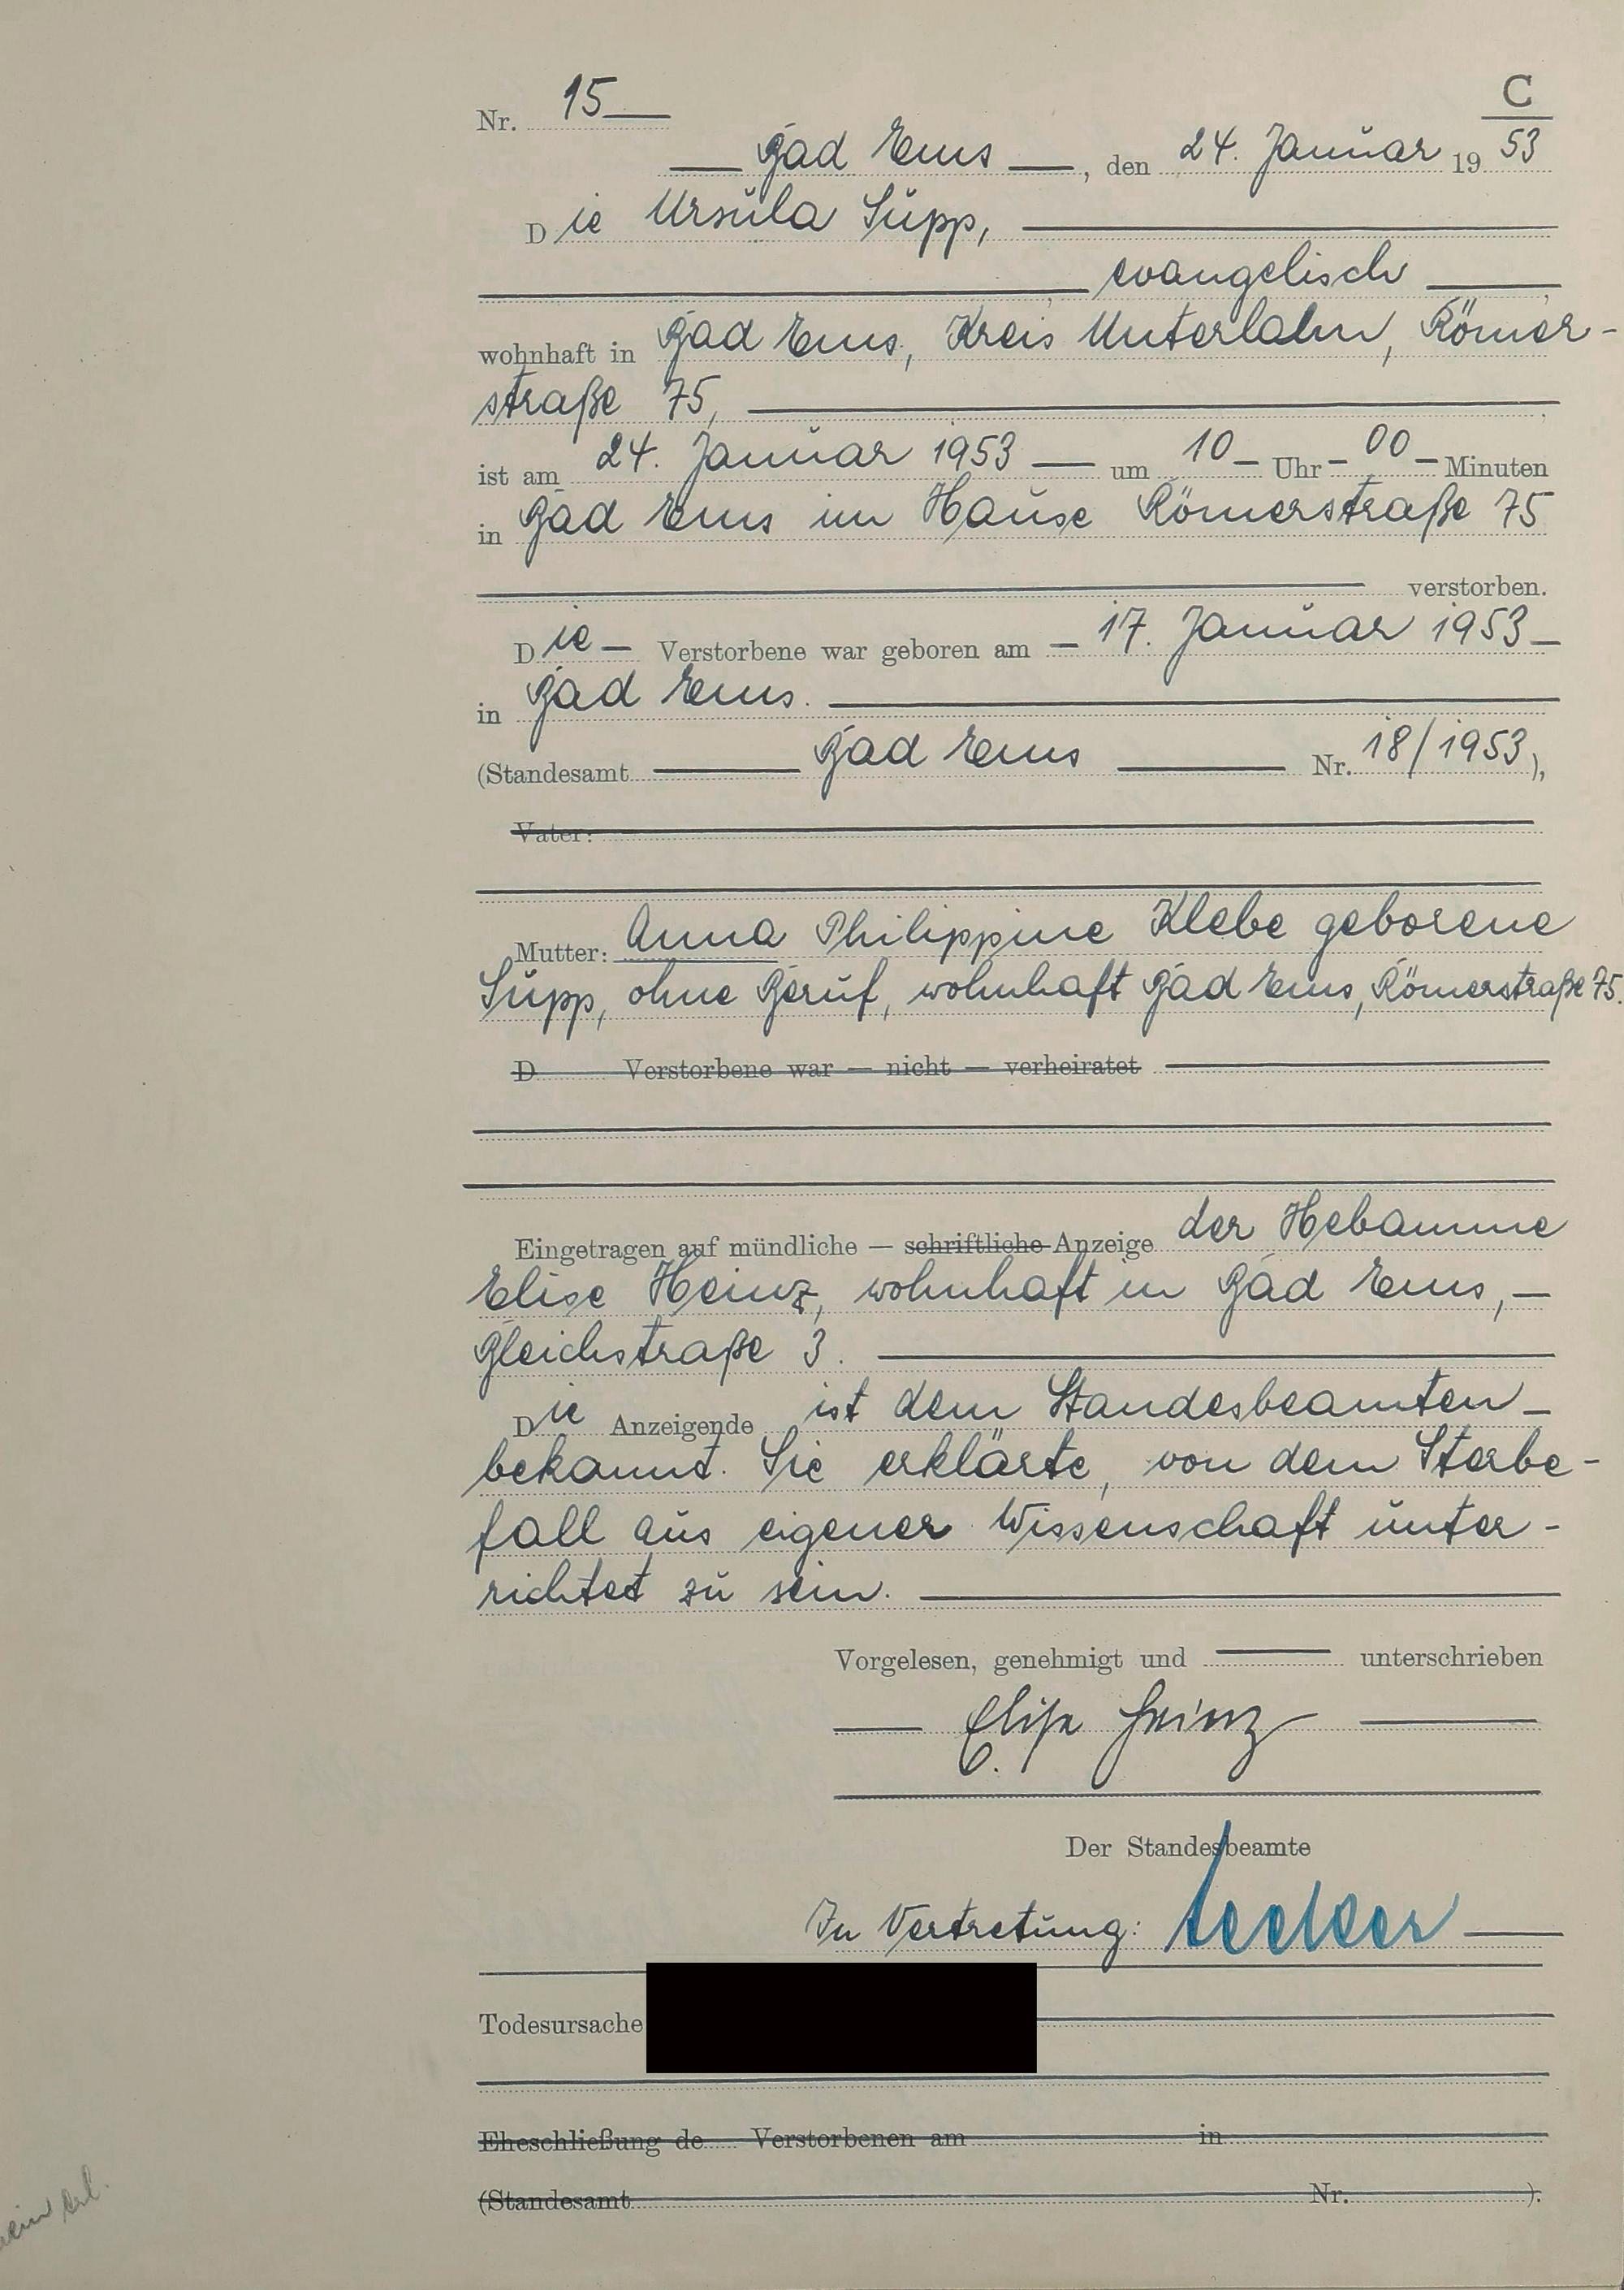 C
Nr. 15
Bad Ems, den 24. Januar 1953
Die Ursula Supp,
evangelisch,
wohnhaft in Bad Ems, Kreis Unterlahn, Römer-
straße 75,
ist am 24. Januar 1953 um 10 Uhr 00 Minuten
in Bad Ems im Hause Römerstraße 75
verstorben.
Die Verstorbene war geboren am 17. Januar 1953
in Bad Ems.
(Standesamt Bad Ems Nr. 18/1953),
Vater:
Mutter: Anna Philippine Klebe geborene
Supp, ohne Beruf, wohnhaft Bad Ems, Römerstraße 75.
D Verstorbene war — nicht — verheiratet
Eingetragen auf mündliche — schriftliche Anzeige der Hebamme
Elise Heinz, wohnhaft in Bad Ems,
Bleichstraße 3.
Die Anzeigende ist dem Standesbeamten
bekannt. Sie erklärte, von dem Sterbe-
fall aus eigener Wissenschaft unter-
richtet zu sein.
Vorgelesen, genehmigt und unterschrieben
Elise Heinz
Der Standesbeamte
In Vertretung:
Todesursache
Eheschließung de Verstorbenen am in
(Standesamt Nr. ).